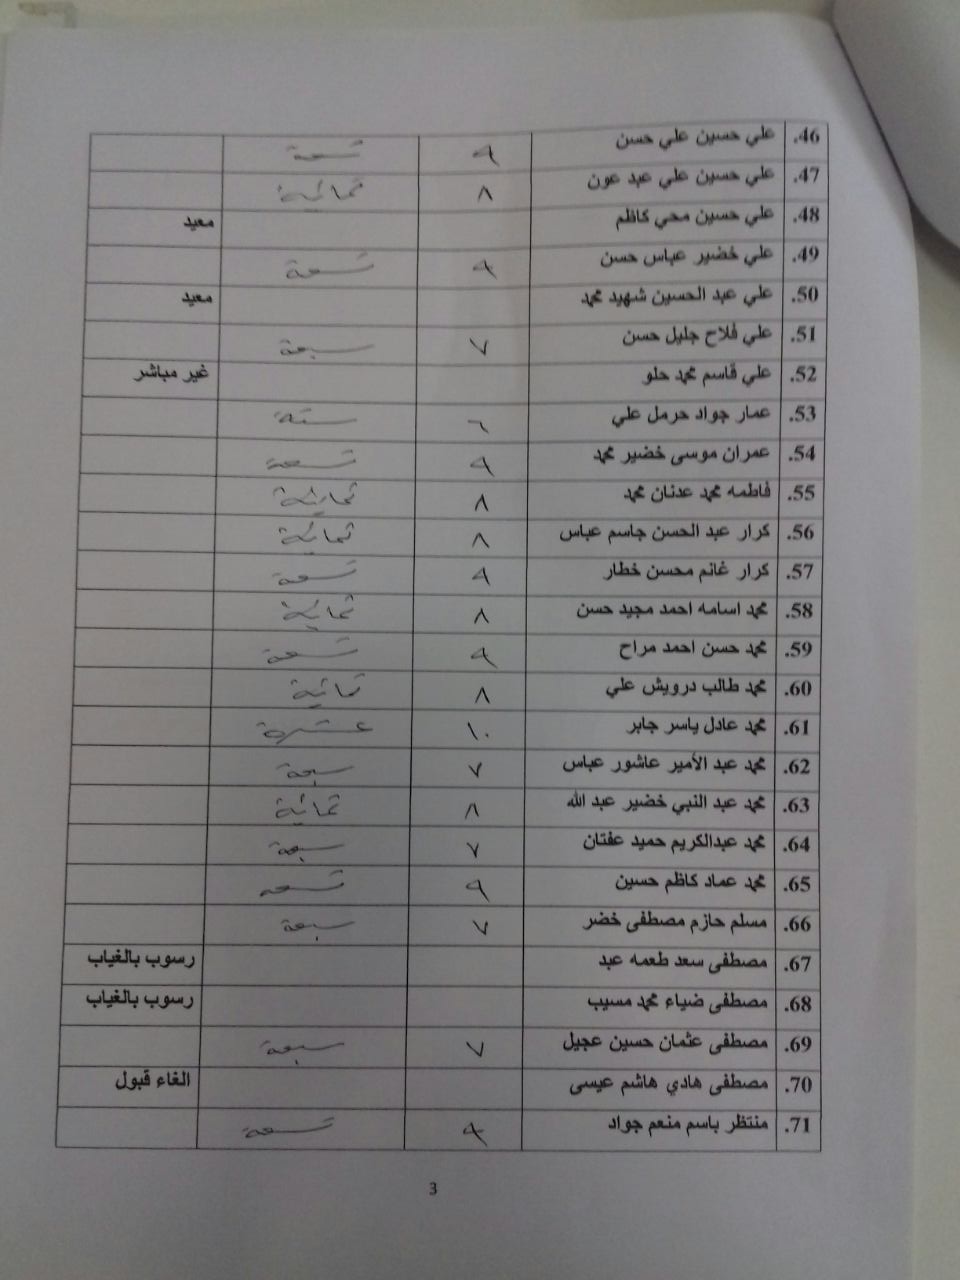 46. علي حسين علي حسن ٩ تسعة
47. علي حسين علي عبد عون ٨ ثمانية
48. علي حسين محي كاظم معيد
49. علي خضير عباس حسن ٩ تسعة
50. علي عبد الحسين شهيد محمد معيد
51. علي فلاح جليل حسن ٧ سبعة
52. علي قاسم محمد حلو غير مباشر
53. عمار جواد حرمل علي ٦ ستة
54. عمران موسى خضير محمد ٩ تسعة
55. فاطمه محمد عدنان محمد ٨ ثمانية
56. كرار عبد الحسن جاسم عباس ٨ ثمانية
57. كرار غانم محسن خطار ٩ تسعة
58. محمد اسامه احمد مجيد حسن ٨ ثمانية
59. محمد حسن احمد مراح ٩ تسعة
60. محمد طالب درويش علي ٨ ثمانية
61. محمد عادل ياسر جابر ١٠ عشرة
62. محمد عبد الأمير عاشور عباس ٧ سبعة
63. محمد عبد النبي خضير عبد الله ٨ ثمانية
64. محمد عبدالكريم حميد عفتان ٧ سبعة
65. محمد عماد كاظم حسين ٩ تسعه
66. مسلم حازم مصطفى خضر ٧ سبعة
67. مصطفى سعد طعمه عبد رسوب بالغياب
68. مصطفى ضياء محمد مسيب رسوب بالغياب
69. مصطفى عثمان حسين عجيل ٧ سبعة
70. مصطفى هادي هاشم عيسى الغاء قبول
71. منتظر باسم منعم جواد ٩ تسعة
3